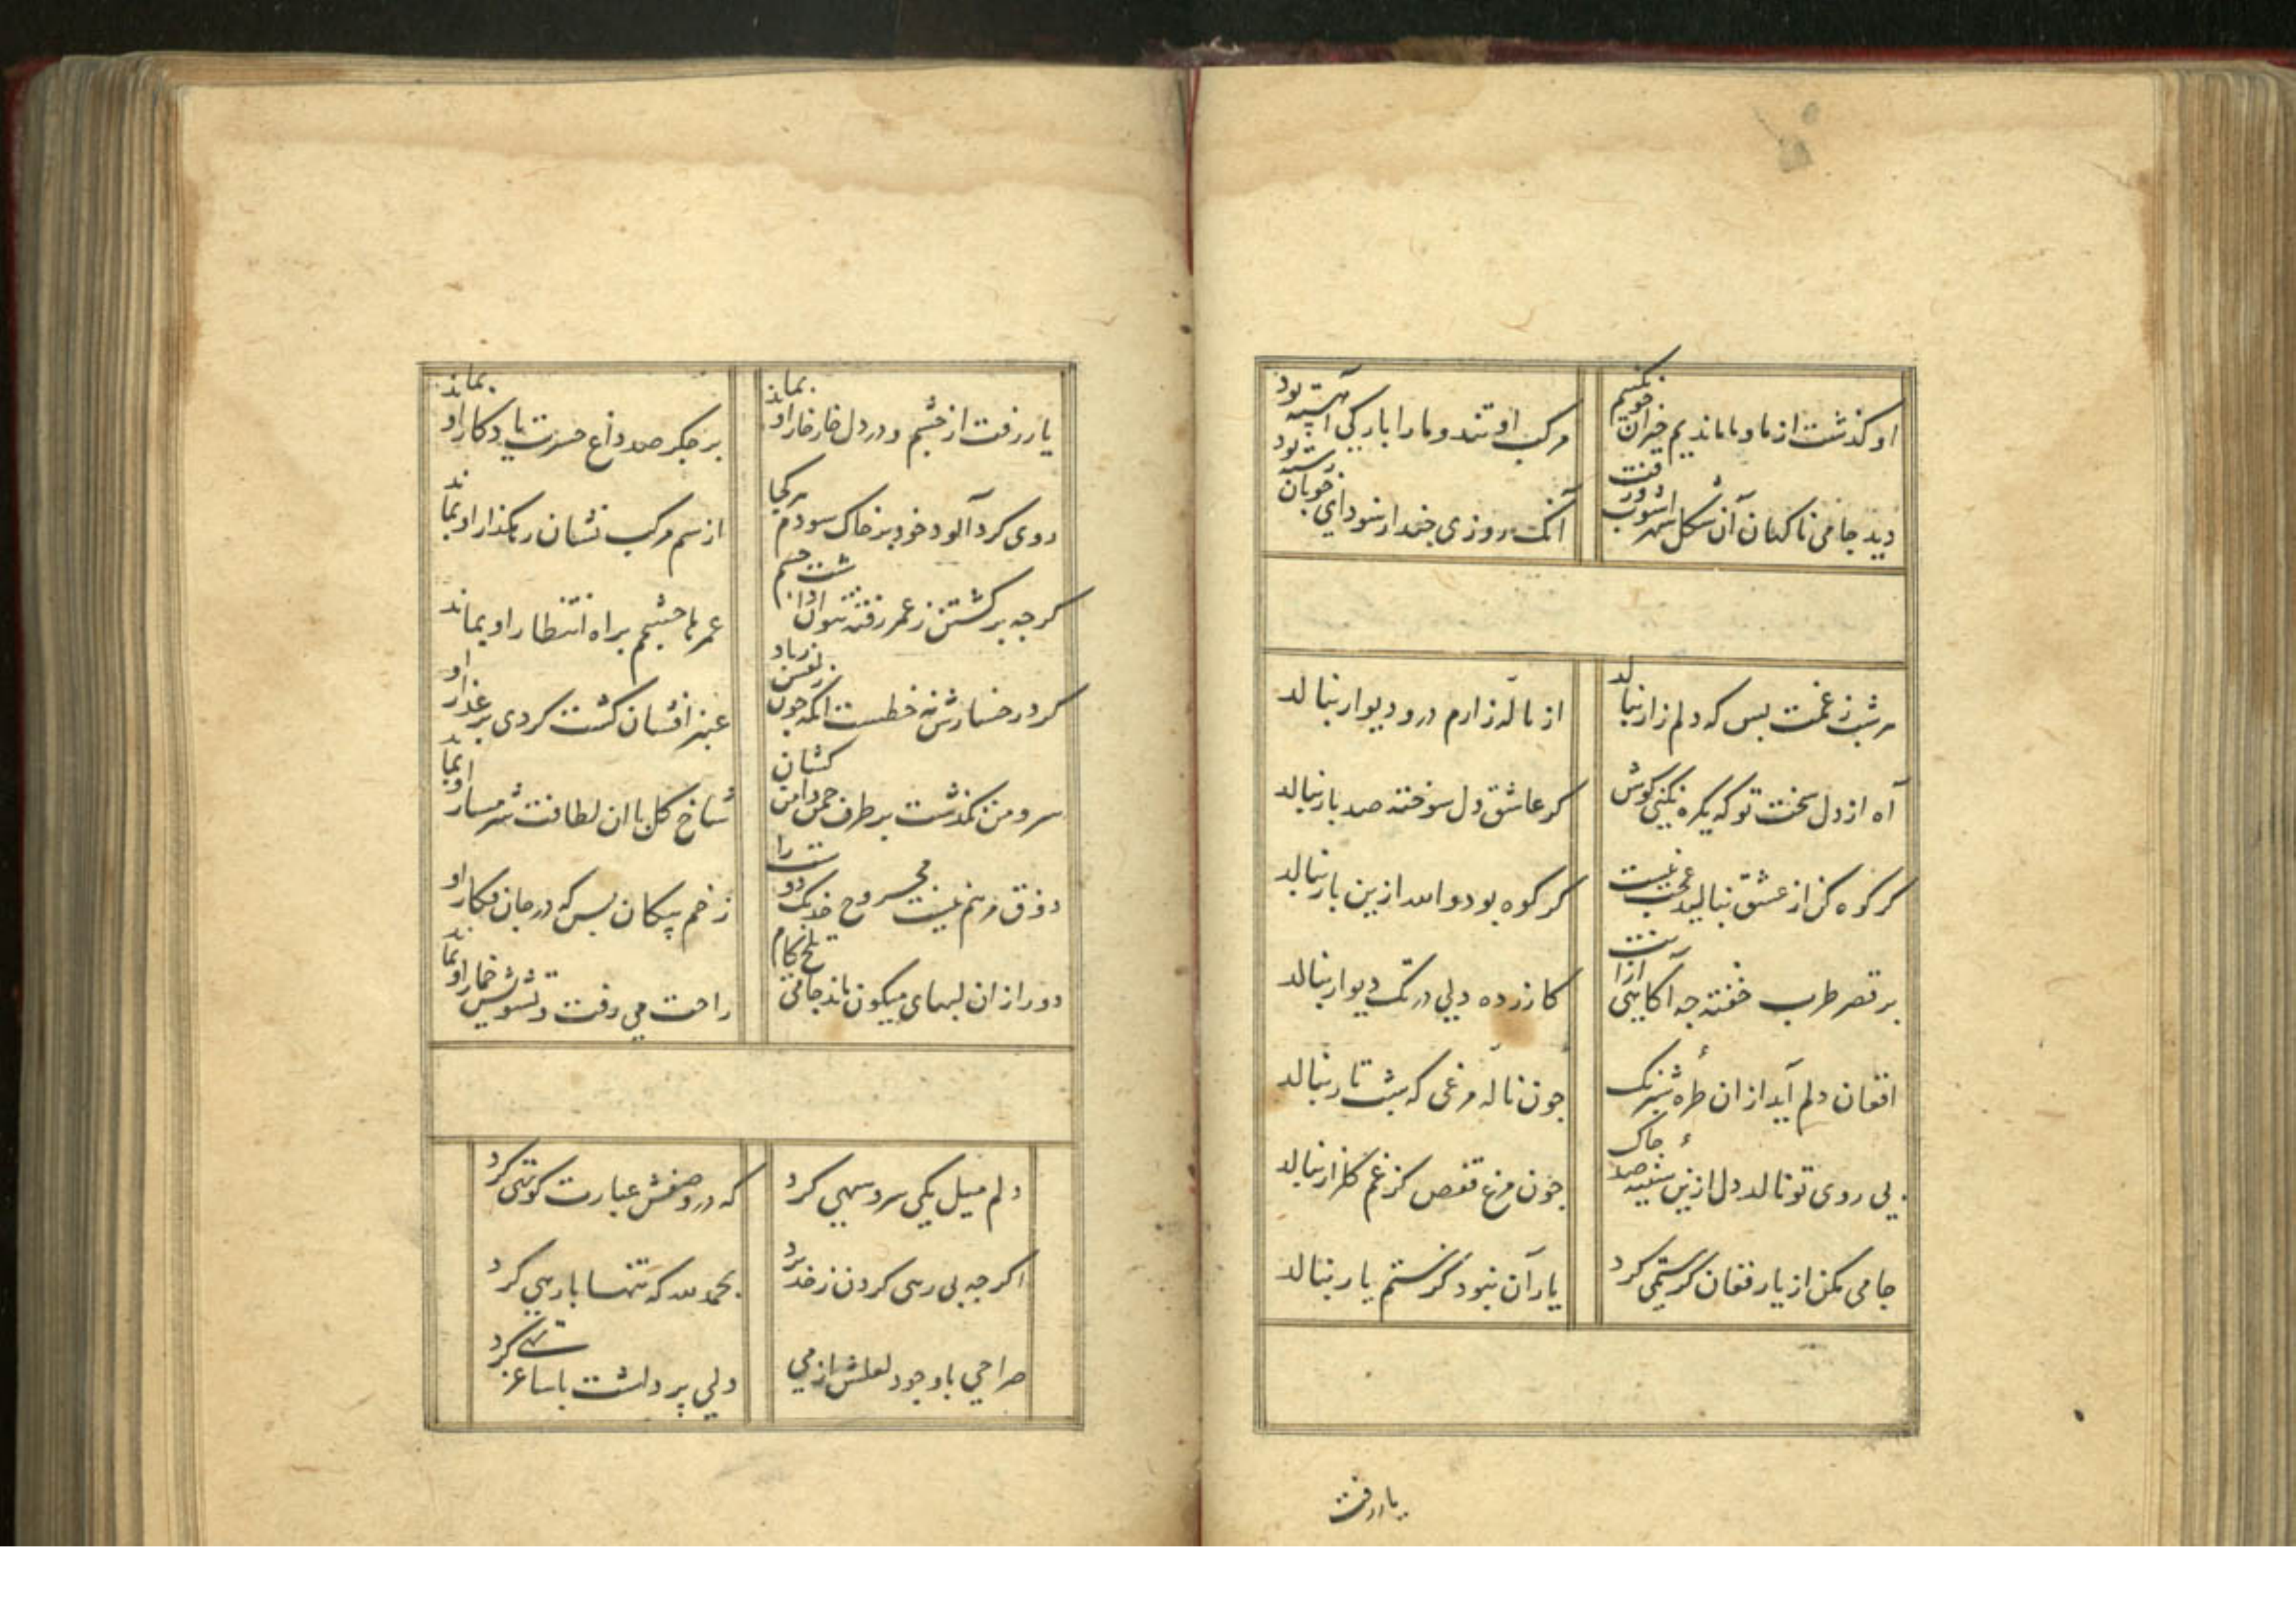 او کذشت از ما و ما ماندیم حیران خویشم
مرکب او تند و ما را بارکی آهسته بود
دید جامی ناکهان آن شکل شهراشوب و رفت
آنک روزی چند از سودای خوبان رسته بود
هر شب ز غمت بس که دلم زار بنالد
از نالهٔ زارم در و دیوار بنالد
آه از دل سخت تو که یکره نکنی کوش
کر عاشق دل سوخته صد بار بنالد
کر کوه کن از عشق بنالید عجب نیست
کر کوه بود والله ازین بار بنالد
بر قصر طرب خفته چه آکاهی ازانت
کازرده دلی در تک دیوار بنالد
افغان دلم آید ازان طرهٔ شبرنک
چون ناله مرغی که بشب تار بنالد
بی روی تو نالد دل ازین سینهٔ صد چاک
چون مرغ قفس کز غم کلزار بنالد
جامی مکن از یار فغان کر ستمی کرد
یار آن نبود کز ستم یار بنالد
یار رفت
یار رفت از چشم و در دل خار خار او بماند
بر جکر صد داغ حسرت یادکار او بماند
روی کرد آلود خود بر خاک سودم هر کجا
از سم مرکب نشان رهکذار او بماند
کرچه برکشتن ز عمر رفته نتوان داشت چشم
عمرها چشمم براه انتظار او بماند
کرد رخسارش نه خطست آنکه چون زلفش زباد
عنبر افشان کشت کردی بر عذار او بماند
سرو من بکذشت بر طرف چمن دامن کشان
شاخ کل با آن لطافت شرمسار او بماند
ذوق مرهم نیست مجروح خدنک دوست را
زخم پیکان بس که در جان فکار او بماند
دور ازان لبهای میکون ماند جامی تلخ کام
راحت می رفت و تشویش خمار او بماند
دلم میل یکی سرو سهی کرد
که در وصفش عبارت کوتهی کرد
اکرچه بی رهی کردن ز خد برد
بحمد لله که تنها با رهی کرد
صراحی با وجود لعلش از می
دلی پر داشت با ساغر تهی کرد